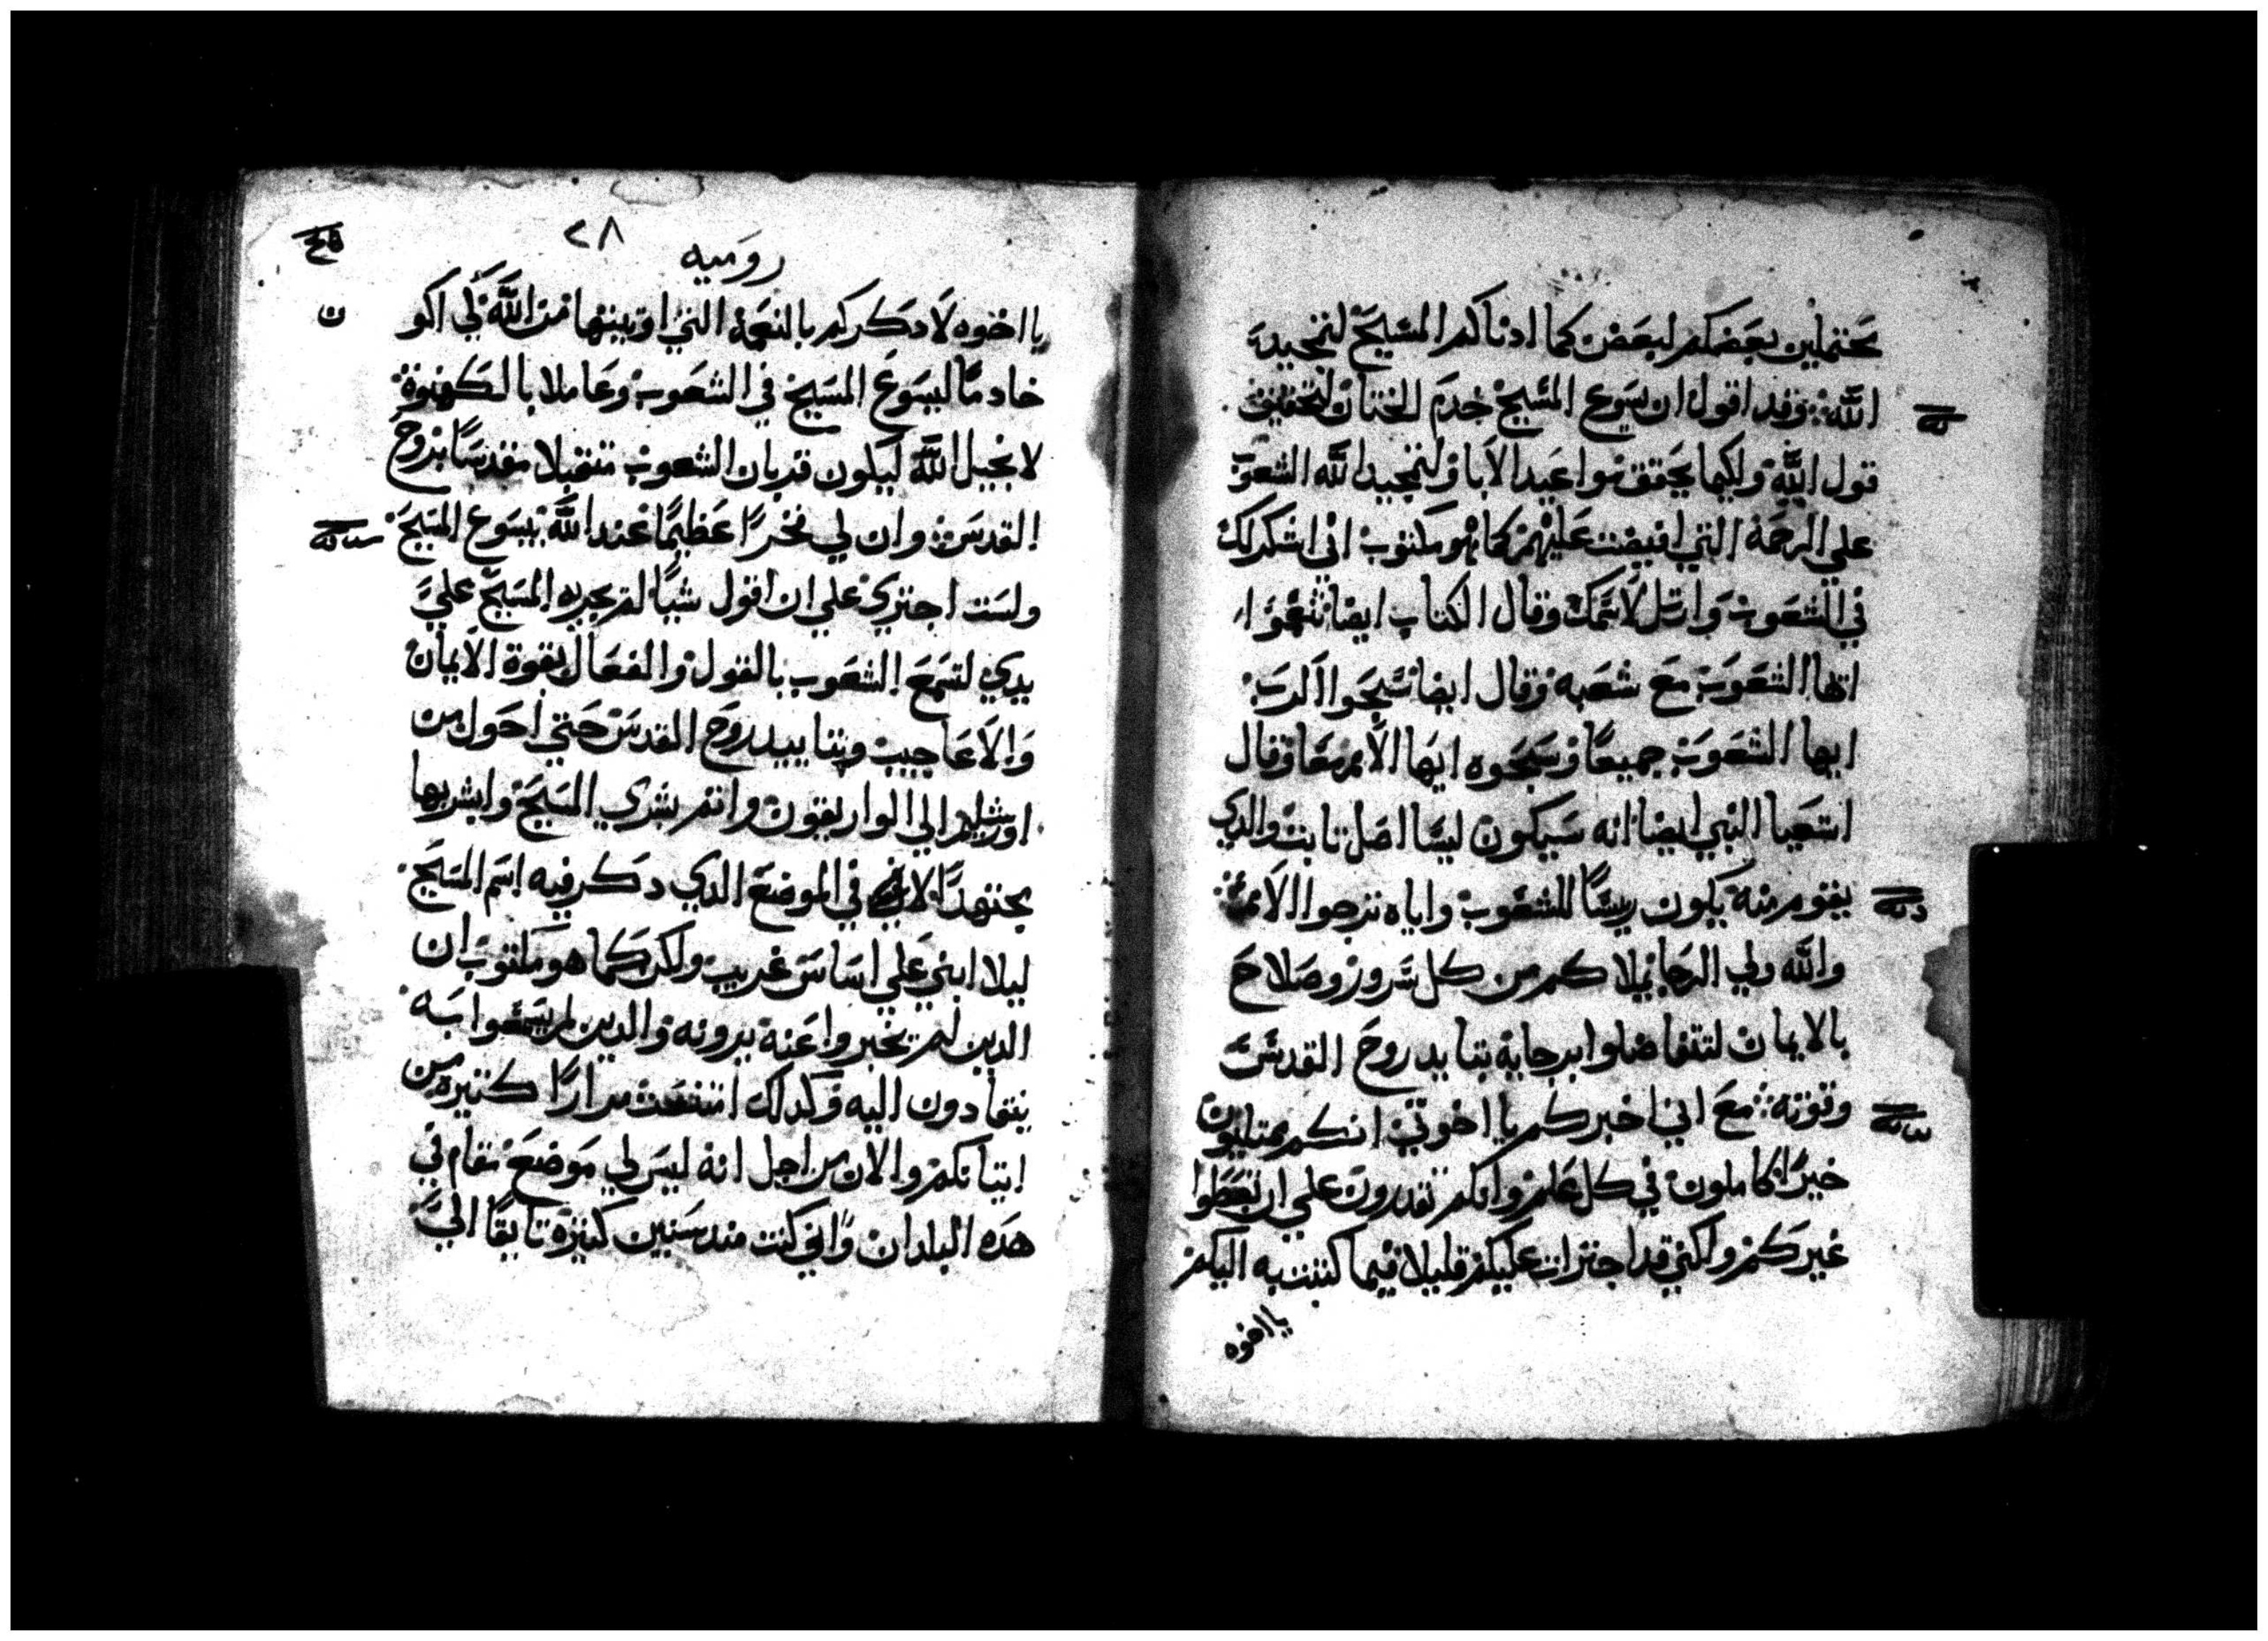 محتملين بعضكم لبعض كما ادناكم المسيح لتمجيد
الله وقد اقول ان يسوع المسيح خدم الختان لتحقيق
قول الله ولكيما يحقق مواعيد الابا ولتمجيد الله الشعوب
علي الرحمة التي افيضت عليهم كما هو مكتوب اني اشكرك
في الشعوب وارتل لاسمك وقال الكتاب ايضا تنعموا
ايها الشعوب مع شعبه وقال ايضا سبحوا الرب
ايها الشعوب جميعا وسبحوه ايها الامم معا وقال
اشعيا النبي ايضا انه سيكون ليسا اصل ثابت والدي
يقوم منه يكون ريسًا للشعوب واياه تترجوا الامم
والله ولي الرجا يملاكم من كل سرور وصلاح
بالايمان لتتفاضلوا برجايه بتاييد روح القدس
وقوته مع اني اخبركم يا اخوتي انكم ممتليون
خيرًا كاملون في كل علم وانكم تقدرون علي ان تعظوا
غيركم ولكني قد اجترات عليكم قليلا فيما كتبت به اليكم
يا اخوه
٢٨
روميه
يا اخوه لادكركم بالنعمة التي اوتيتها من الله لكي اكو
ن
خادمًا ليسوع المسيح في الشعوب وعاملا بالكهنوة
لانجيل الله ليكون قربان الشعوب متقبلا مقدسًا بروح
القدس وان لي فخرًا عظيمًا عند الله بيسوع المسيح
ولست اجتري علي ان اقول شيًا لم يجريه المسيح علي
يدي لتسمع الشعوب بالقول والفعال بقوة الايمان
والاعاجيب وبتاييد روح القدس حتي احول من
اورشليم الي الواريقون واتم بشري المسيح وابشر بها
مجتهدًا لا في الموضع الدي دكر فيه اسم المسيح
ليلا ابني علي اساس غريب ولكن كما هو مكتوب ان
الدين لم يخبروا عنه يرونه والدين لم يسمعوا به
ينقادون اليه وكدلك امتنعت مرارًا كثيره من
اتيانكم والان من اجل انه ليس لي موضع مقام في
هده البلدان واني كنت مند سنين كثيرة تايقًا الي